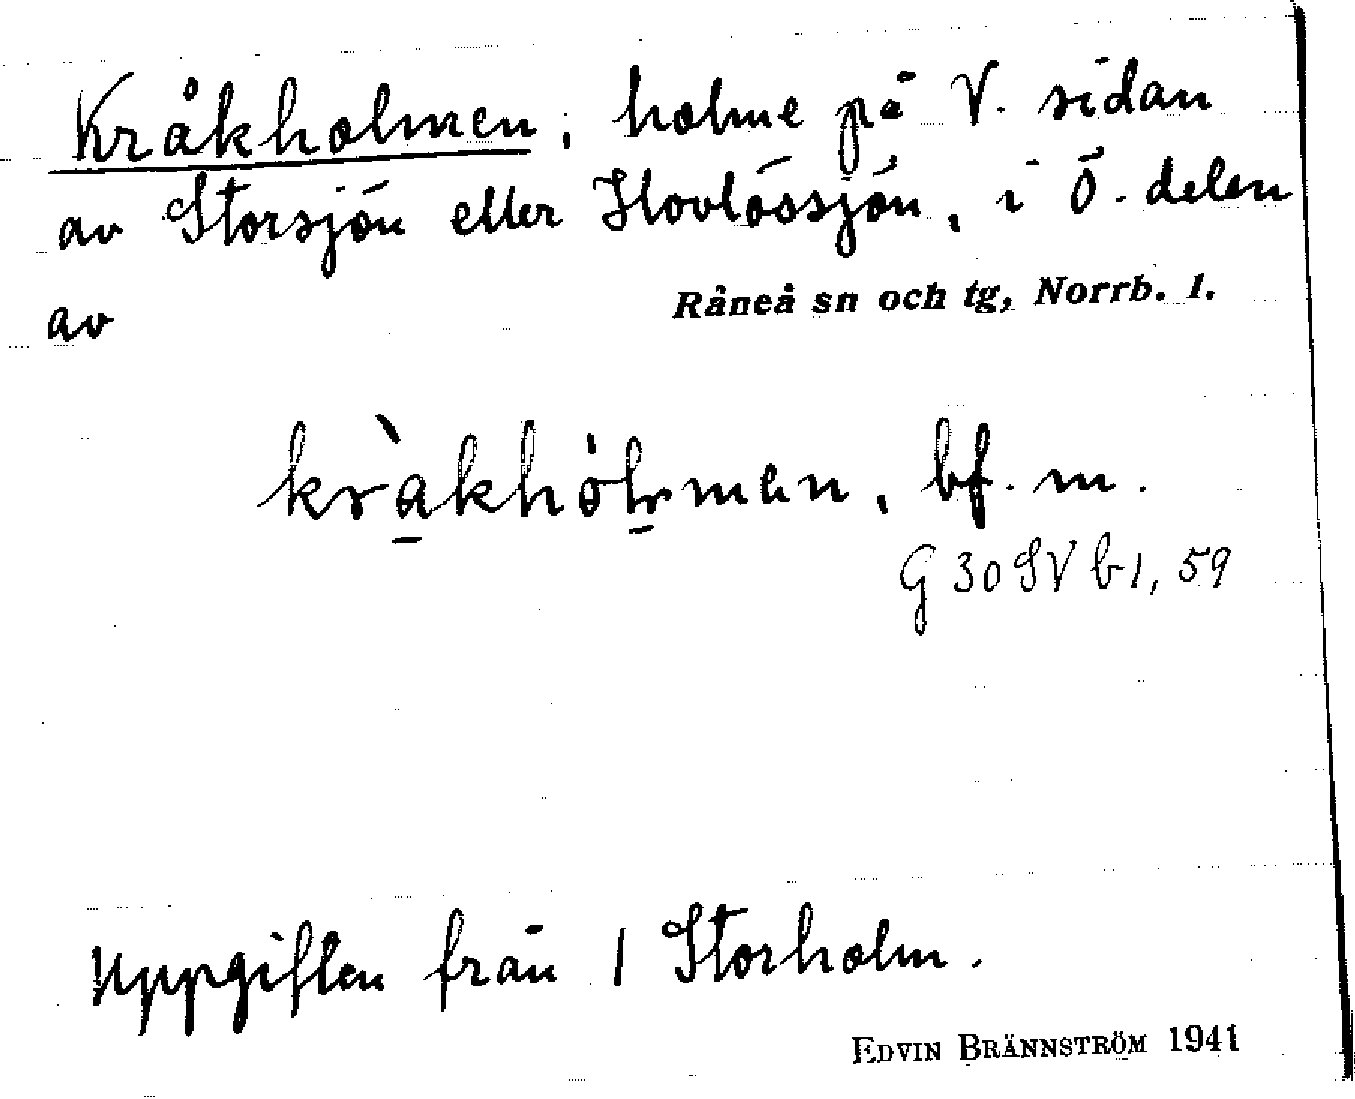 Kråkholmen, holme på V. sidan
av Storsjön eller Hovlössjön, i Ö. delen
av Råneå sn och tg, Norrb. l.
bf. m.
G 30 SV b1, 59
Uppgiften från 1 Storholm.
EDVIN BRÄNNSTRÖM 1941